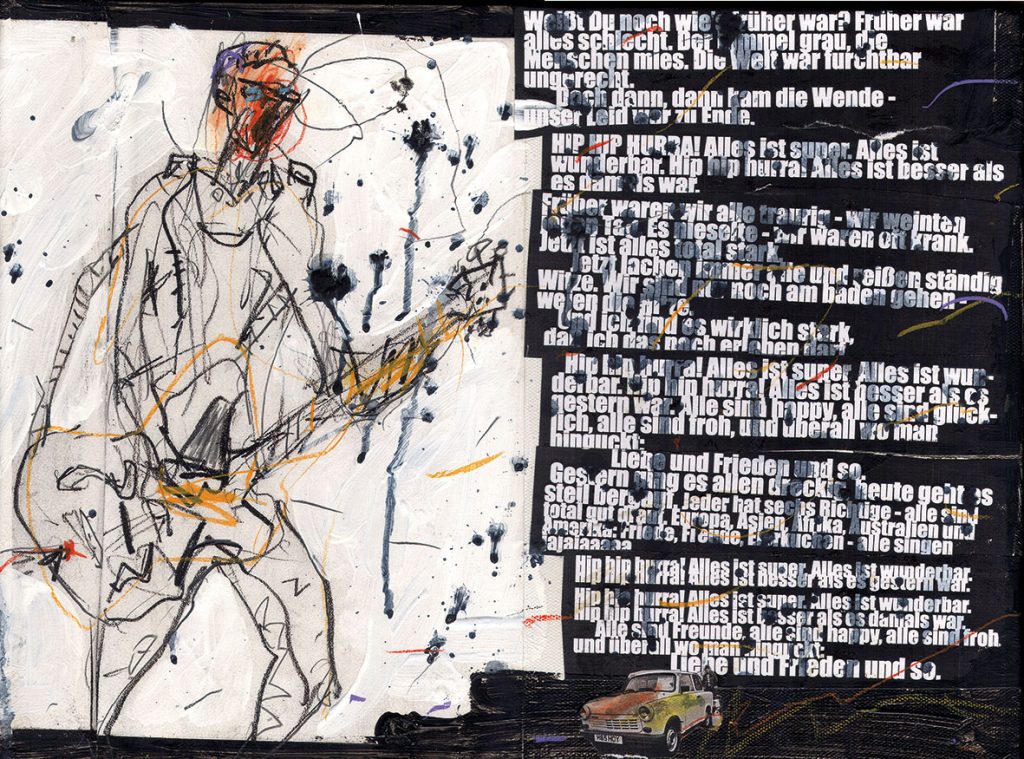 Weißt Du noch wie's früher war? Früher war
alles schlecht. Der Himmel grau, die
Menschen mies. Die Welt war furchtbar
ungerecht.
Doch dann, dann kam die Wende -
unser Leid war zu Ende.
HIP HIP HURRA! Alles ist super. Alles ist
wunderbar. Hip hip hurra! Alles ist besser als
es damals war.
Früher waren wir alle traurig - wir weinten
Tag. Es nieselte - wir waren oft krank.
Jetzt ist alles total stark.
Jetzt lachen immer alle und reißen ständig
Witze. Wir sind nur noch am baden gehen
wegen die
Und ich find es wirklich stark,
das ich das noch erleben darf.
Hip hip hurra! Alles ist super. Alles ist wun-
derbar. Hip hip hurra! Alles ist besser als es
gestern war. Alle sind happy, alle sind glück-
lich, alle sind froh, und überall wo man
hinguckt:
Liebe und Frieden und so.
Gestern ging es allen dreckig, heute geht es
steil bergauf. Jeder hat sechs Richtige - alle sind
total gut drauf, Europa, Asien, Afrika, Australien und
Amerika. Friede, Freude, Kuchen - alle singen
Hip hip hurra! Alles ist super. Alles ist wunderbar.
Hip hip hurra! Alles ist besser als es gestern war.
Hip hip hurra! Alles ist super. Alles ist wunderbar.
Hip hip hurra! Alles ist besser als es damals war.
Alle sind Freunde, alle sind happy, alle sind froh.
und überall wo man hinguckt:
Liebe und Frieden und so.